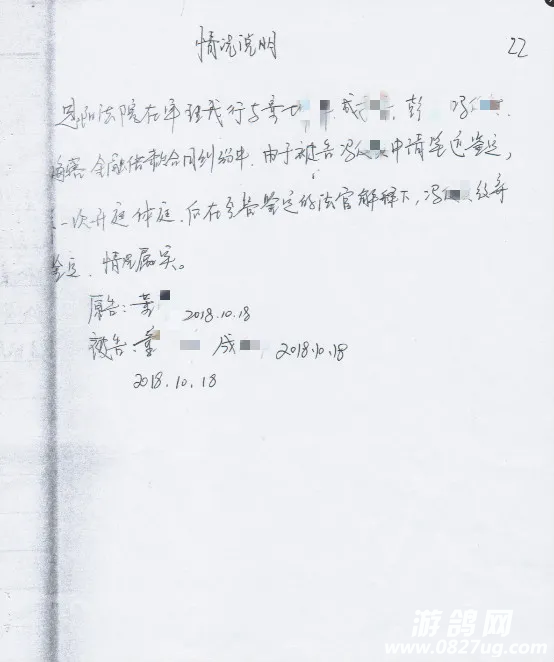 情况说明
22
恩阳法院在审理我行与 成 彭 冯
金融借款合同纠纷中,由于被告冯 申请笔迹鉴定,
一次开庭休庭,后在负责鉴定的法官解释下,冯
鉴定,情况属实。
原告: 2018.10.18
被告: 成 2018.10.18
2018.10.18
游鸽网
www.0827ug.com